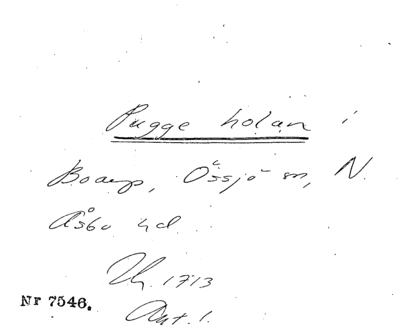 Puggeholan i
Boarp, Össjö sn, N.
Åsbo hd.
Th. 1713
Ant. 1.
Nr 7546.